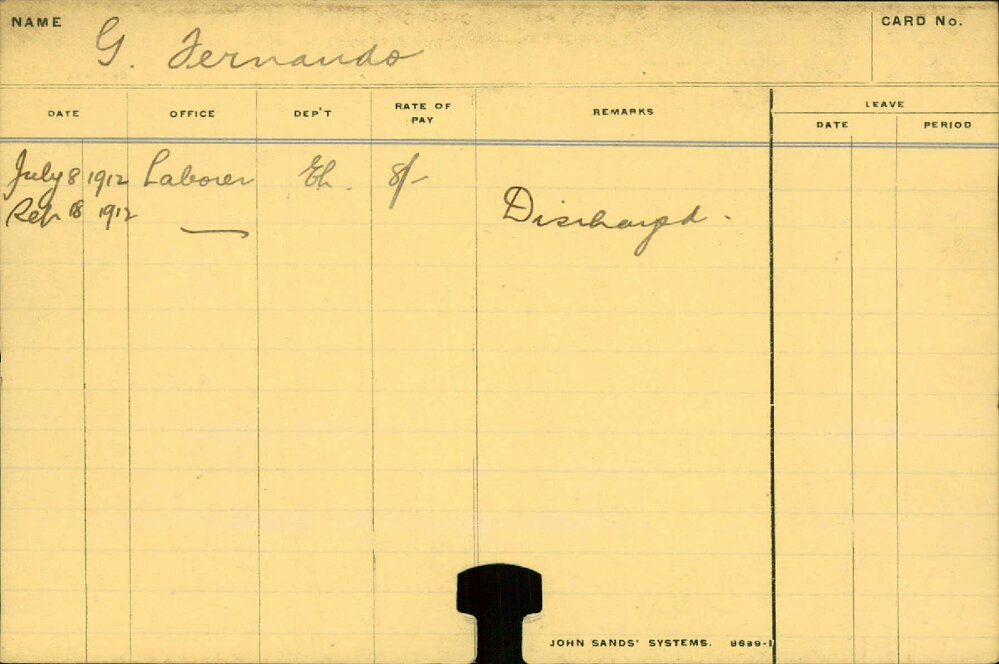 NAME G. Fernando CARD No.
DATE OFFICE DEP'T RATE OF PAY REMARKS LEAVE
DATE PERIOD
July 8 1912 Laborer Eh. 8/-
Sep 18 1912 — Discharged.
JOHN SANDS' SYSTEMS. 8689-1